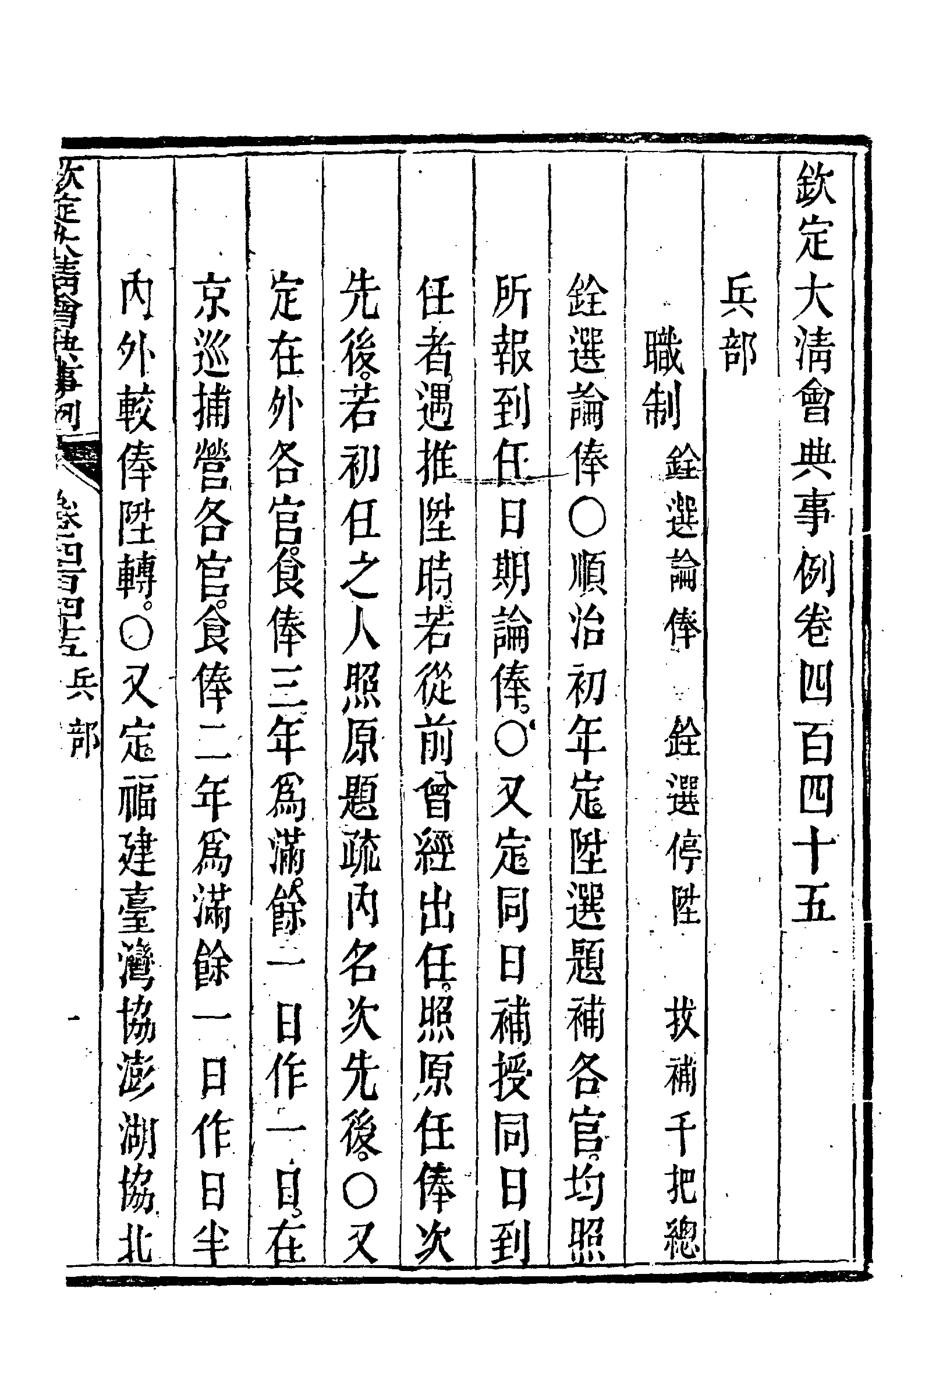 欽定大清會典事例卷四百四十五
兵部
職制 銓選論俸 銓選停陞 拔補千把總
銓選論俸〇順治初年定陞選題補各官。均照
所報到任日期論俸。〇又定同日補授同日到
任者。遇推陞時。若從前曾經出任。照原任俸次
先後。若初任之人照原題疏內名次先後。〇又
定在外各官。食俸三年爲滿。餘一日作一日。在
京巡捕營各官。食俸二年爲滿餘一日作日半
內外較俸陞轉。〇又定福建臺灣協澎湖協北
欽定大清會典事例 卷四百四十五 兵部 一